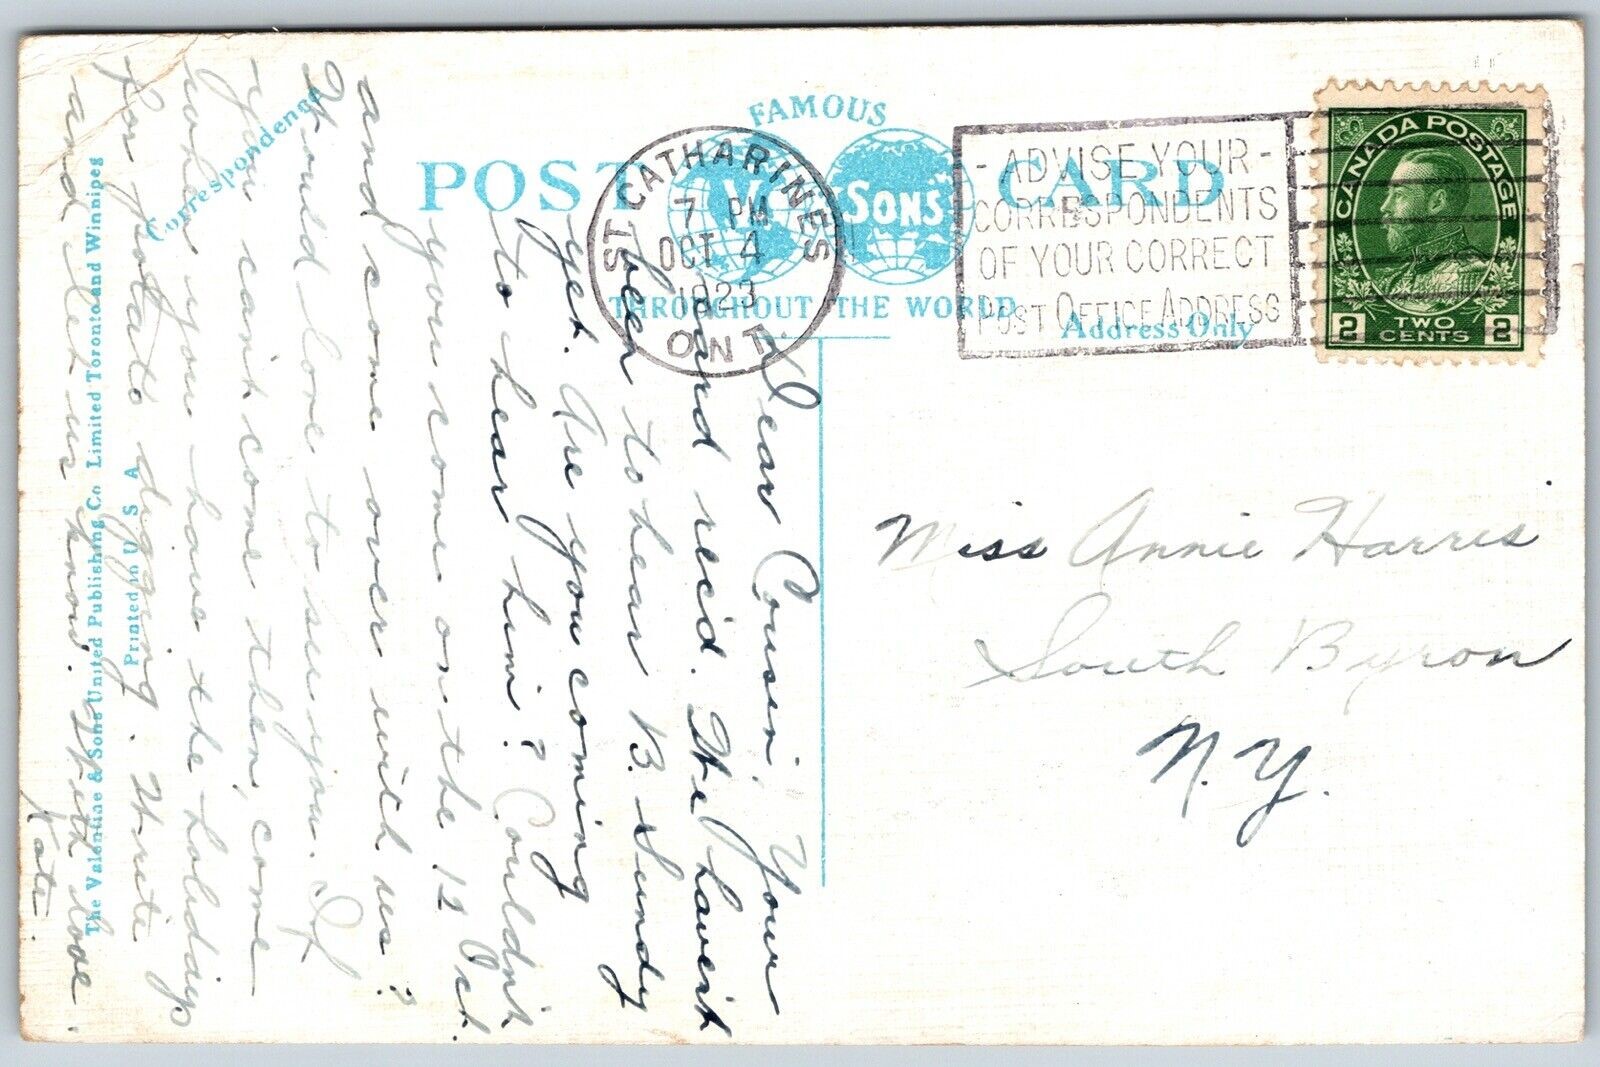 FAMOUS
POST CARD
V. SONS
THROUGHOUT THE WORLD
Correspondence
Address Only
ST. CATHARINES
7 PM
OCT 4
1923
ONT.
- ADVISE YOUR -
CORRESPONDENTS
OF YOUR CORRECT
POST OFFICE ADDRESS
CANADA POSTAGE
2 TWO CENTS 2
Dear Cousin, Your
card rec'd. We havent
been to hear B. Sundy
yet. Are you coming
to hear him? Couldn't
you come on the 12 Oct
and come over with us?
Would love to see you. If
you can't come then, come
when you have the holidays
for potato digging. Write
and let us know. With love.
Kate.
Miss Annie Harris
South Byron
N.Y.
The Valentine & Sons United Publishing Co. Limited Toronto and Winnipeg
Printed in U S A